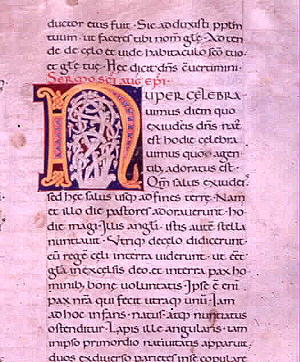 ductor eius fuit. Sic adduxisti ppłm
tuum. ut faceres tibi nom̄ głe. Atten
de de celo et uide habitaculo sc̄o tuo
et głe tue. Hec dicit dn̄s c̄uertimini.
Sermo sc̄i aug epi.
NUPER CELEBRA
uimus diem quo
ex iudeis dn̄s nat᷒
est hodie celebra
uimus quo a gen
tib; adoratus est.
Qm̄ salus ex iudeis
sed hec salus usq; ad fines terre. Nam
et illo die pastores adorauerunt. ho
die magi. Illis angłi. istis aute stella
nuntiauit. Utriq; de celo didicerunt
cū regē celi in terra uiderunt. ut eēt
głia in excelsis deo. et in terra pax ho
minib; bone uoluntatis. Ipse ē eni
pax nr̄a qui fecit utraq; unū. Iam
ad hoc infans. natus atq; nuntiatus
ostenditur. Lapis ille angularis. iam
in ipso primordio natiuitatis apparuit.
duos ex diuerso parietes in se copulare